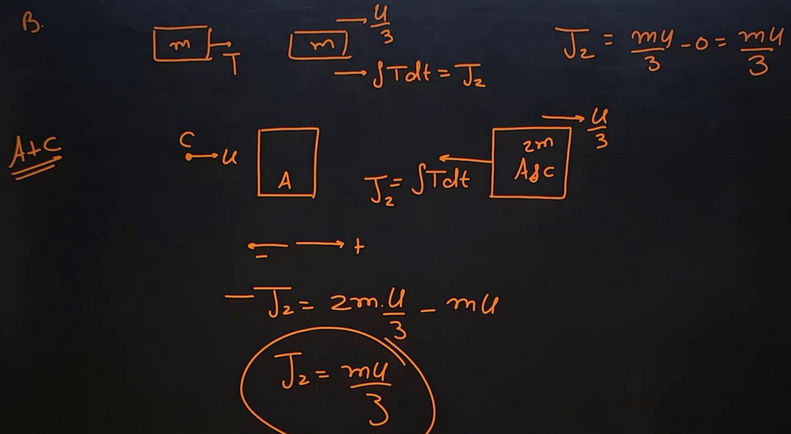 B.
m → T
m → u/3
→ ∫Tdt = J₂
J₂ = mu/3 - 0 = mu/3
A+C
C → u
A
J₂ = ∫Tdt
2m
A&C
→ u/3
- +
-J₂ = 2m.u/3 - mu
J₂ = mu/3